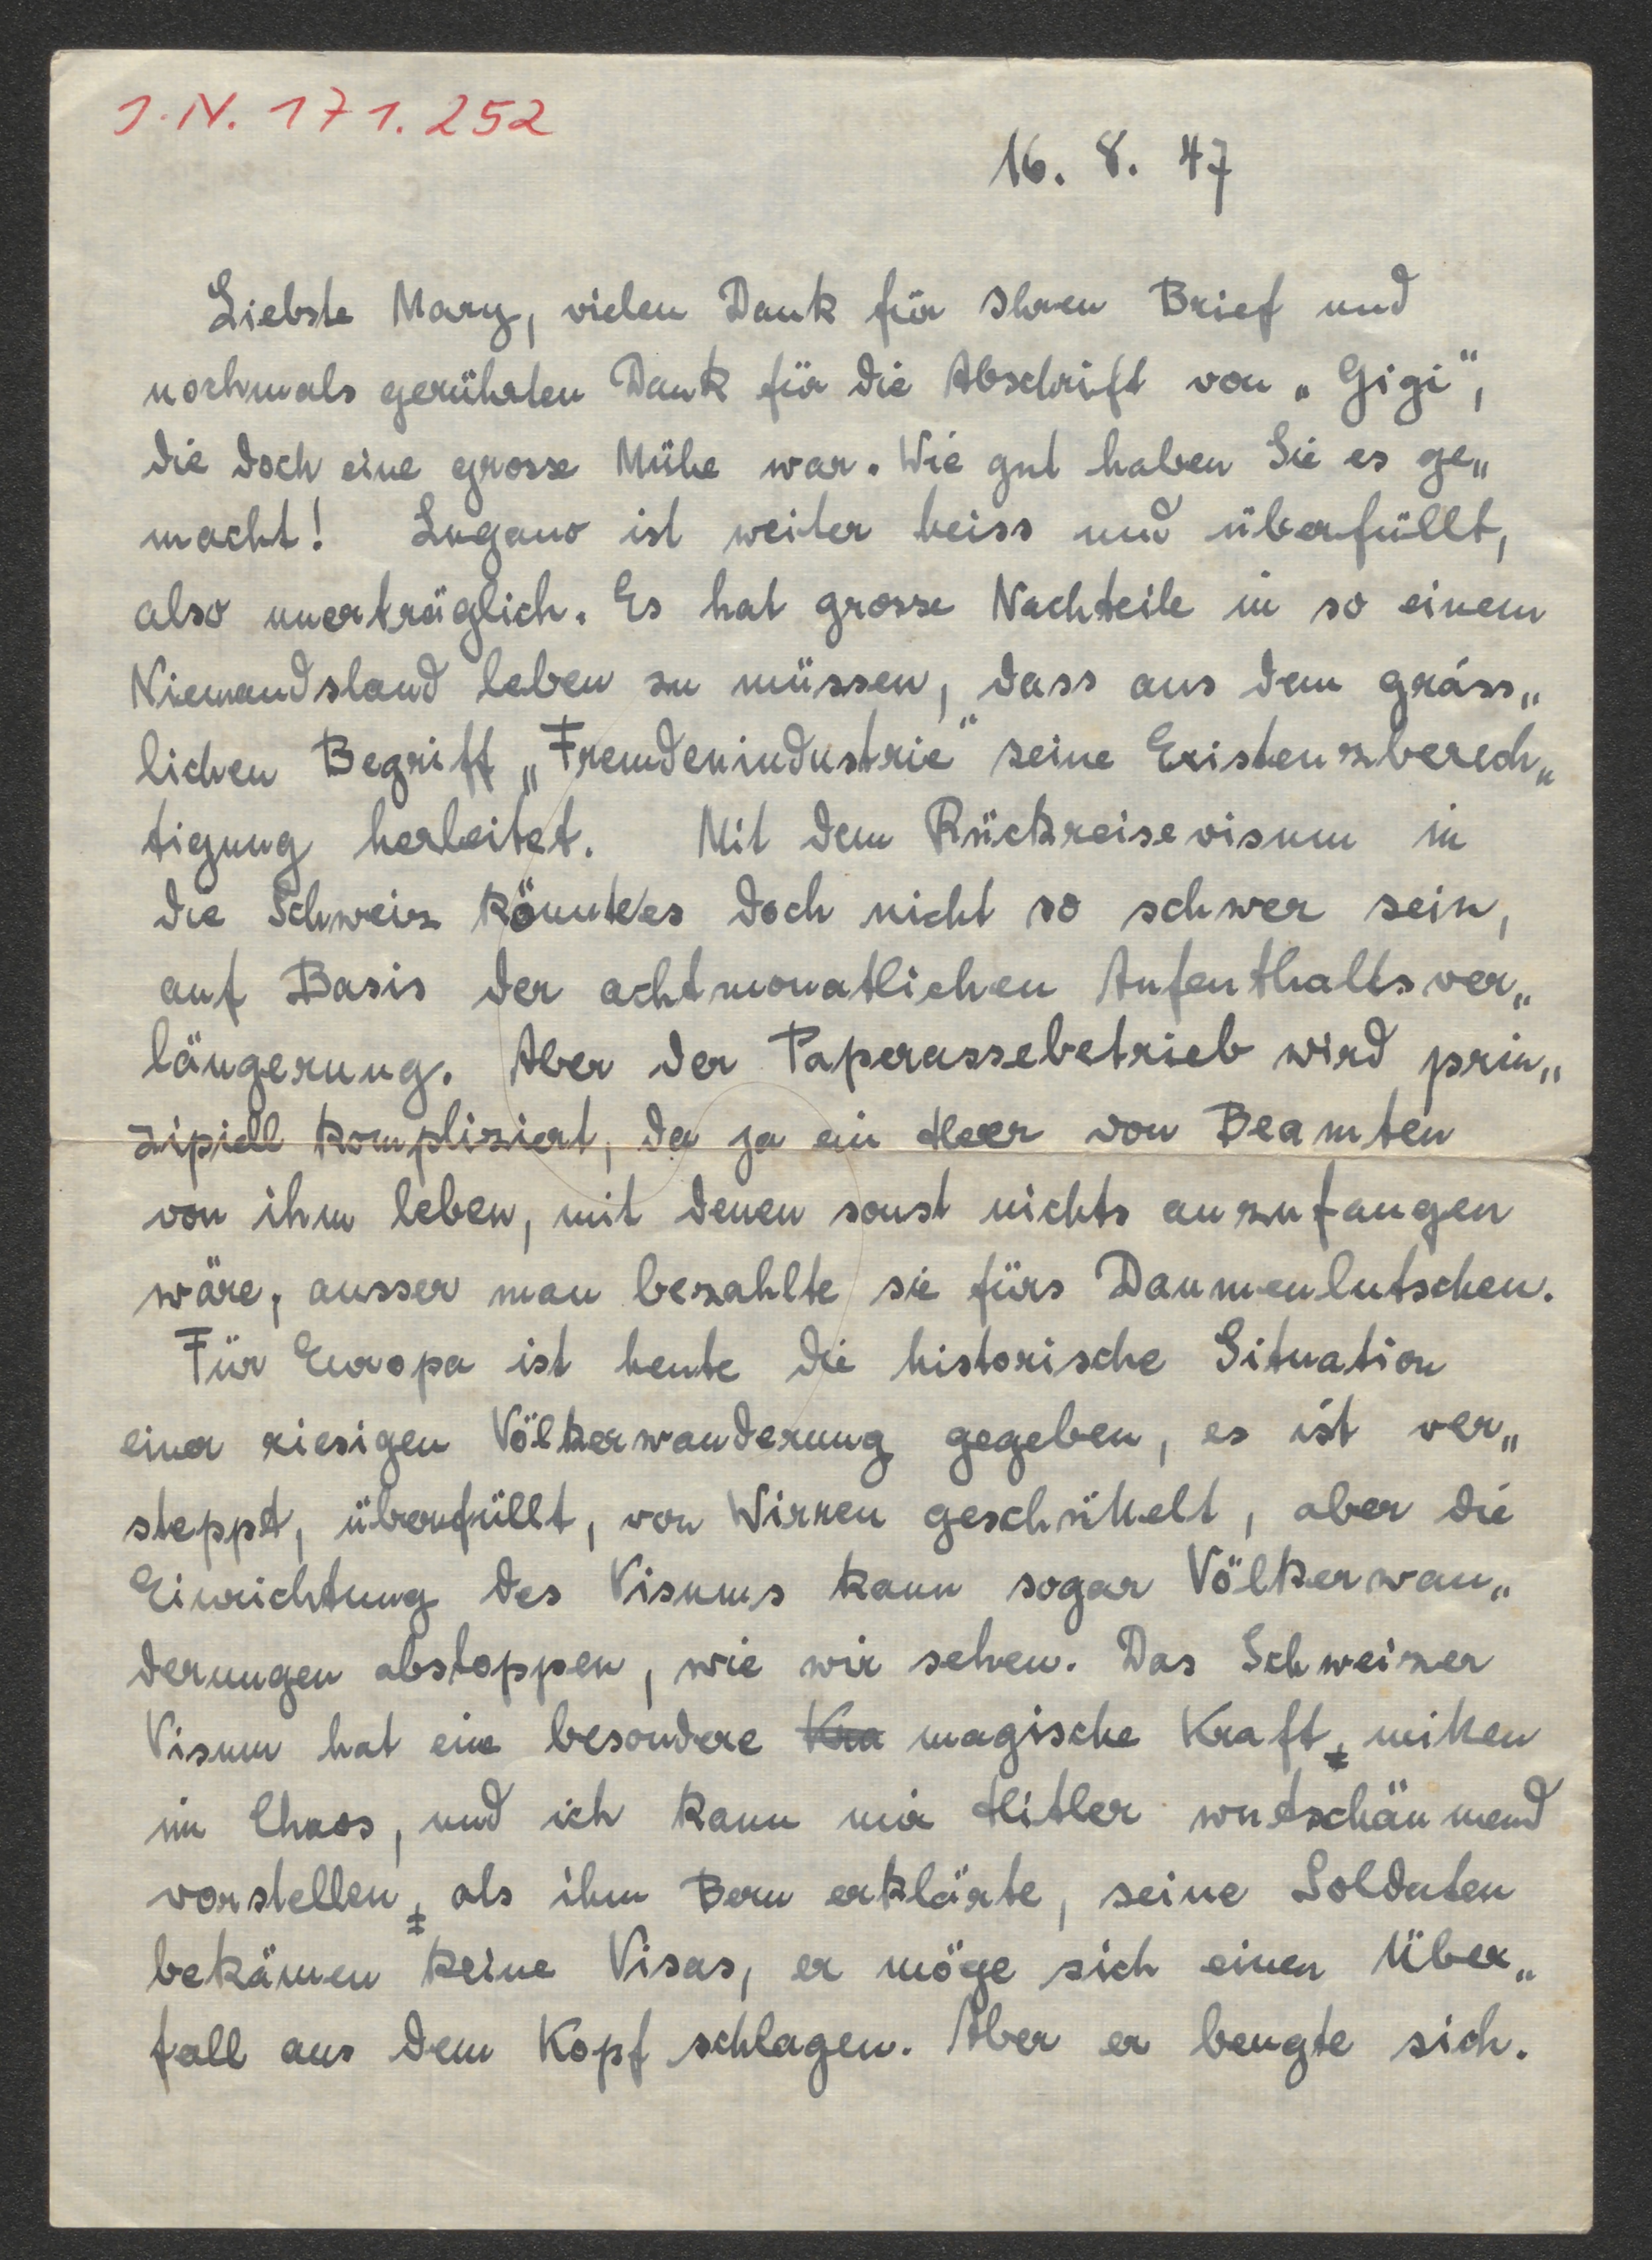 J.N. 171.252
16. 8. 47
Liebste Mary, vielen Dank für Ihren Brief und
nochmals gerührten Dank für die Abschrift von „Gigi“,
die doch eine grosse Mühe war. Wie gut haben Sie es ge„
macht! Lugano ist weiter heiss und überfüllt,
also unerträglich. Es hat grosse Nachteile in so einem
Niemandsland leben zu müssen, dass aus dem gräss„
lichen Begriff „Fremdenindustrie“ seine Existenzberech„
tigung herleitet. Mit dem Rückreisevisum in
die Schweiz könnte es doch nicht so schwer sein,
auf Basis der achtmonatlichen Aufenthaltsver„
längerung. Aber der Paperassebetrieb wird prin„
zipiell kompliziert, da ja ein Heer von Beamten
von ihm leben, mit denen sonst nichts anzufangen
wäre, ausser man bezahlte sie fürs Daumenlutschen.
Für Europa ist heute die historische Situation
einer riesigen Völkerwanderung gegeben, es ist ver„
steppt, überfüllt, von Wirren geschüttelt, aber die
Einrichtung des Visums kann sogar Völkerwan„
derungen abstoppen, wie wir sehen. Das Schweizer
Visum hat eine besondere Kra magische Kraft, mitten
im Chaos, und ich kann mir Hitler wutschäumend
vorstellen, als ihm Bern erklärte, seine Soldaten
bekämen keine Visas, er möge sich einen Über„
fall aus dem Kopf schlagen. Aber er beugte sich.